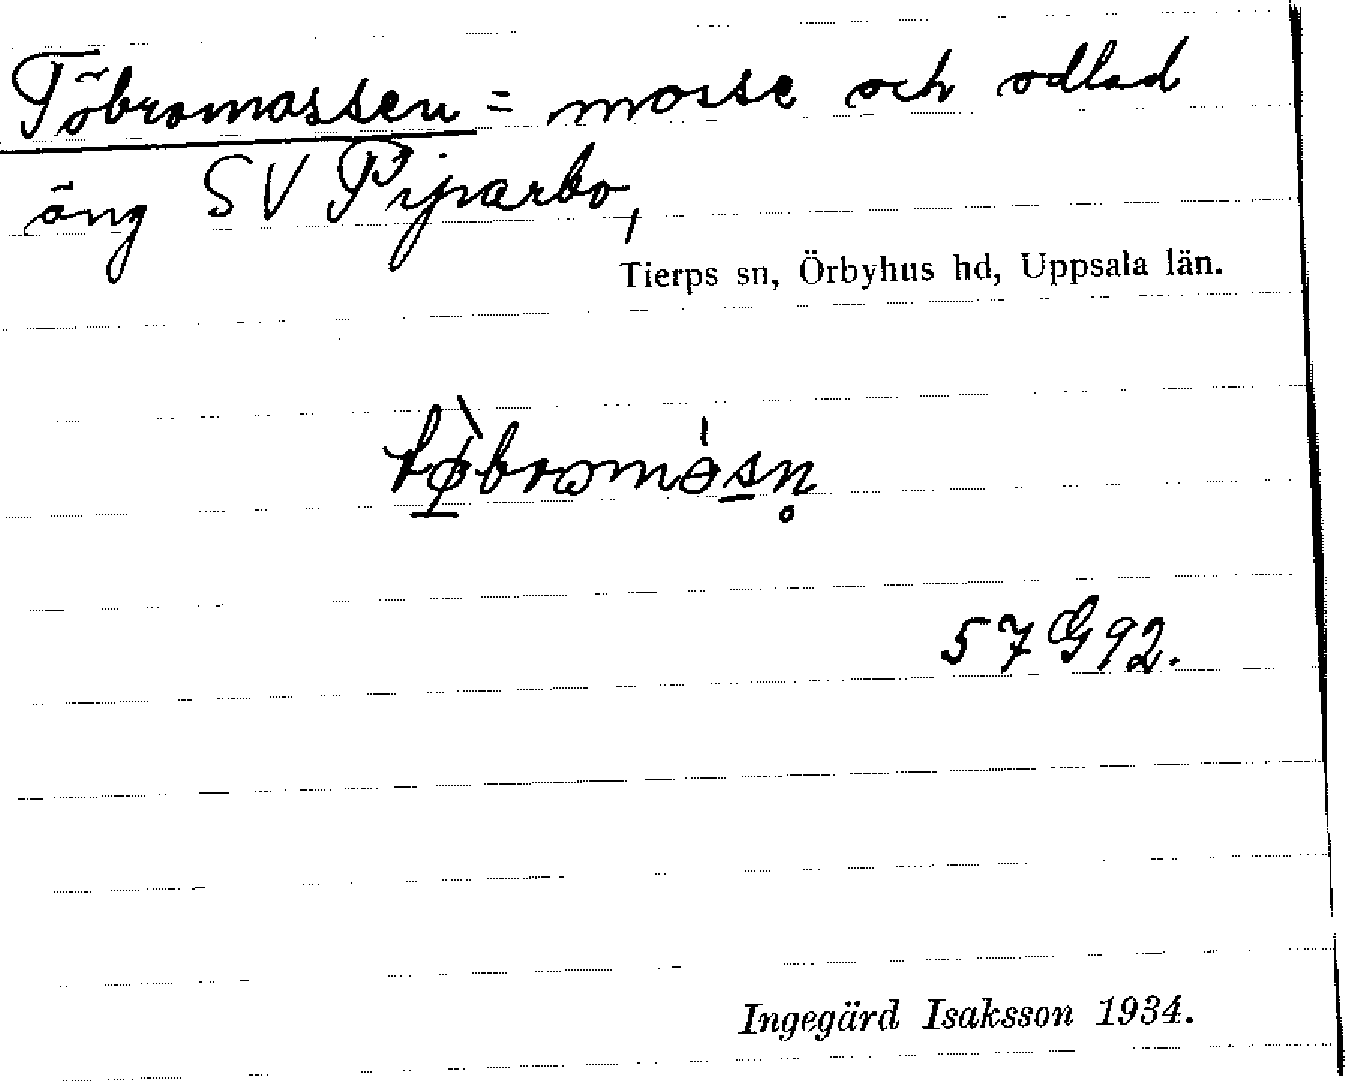 Töbromossen = mosse och odlad
äng SV Piparbo,
Tierps sn, Örbyhus hd, Uppsala län.
57 G 92.
Ingegärd Isaksson 1934.